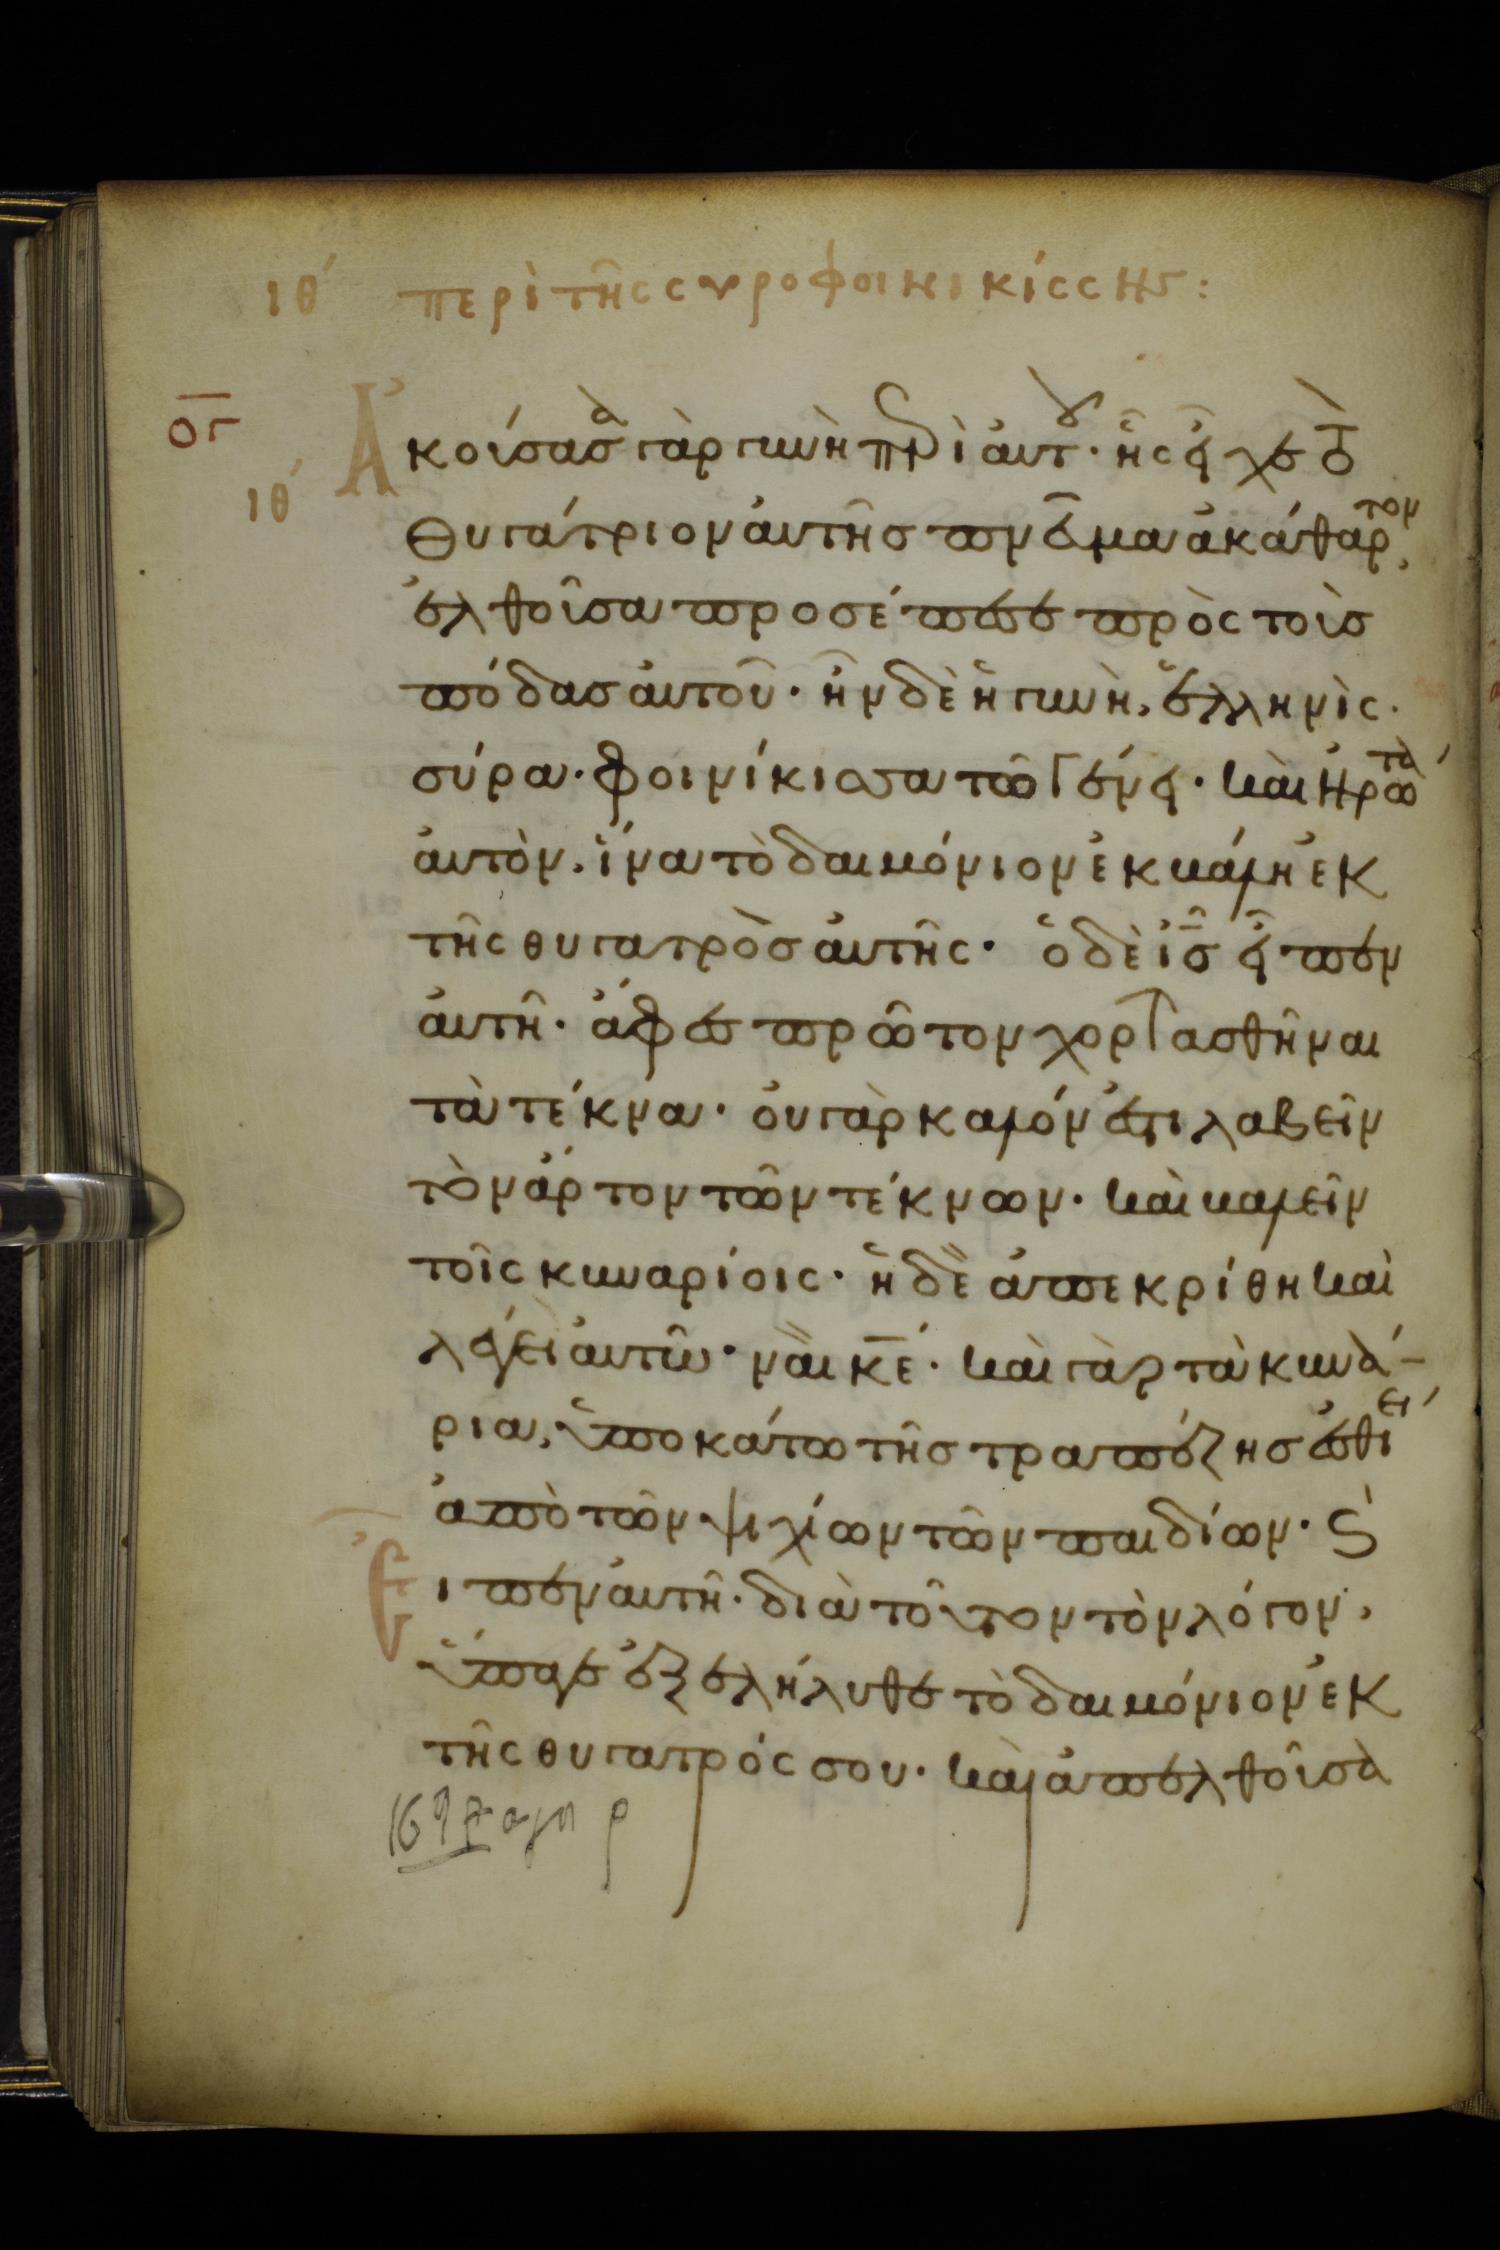 ιθ´ περὶ τῆς συροφοινικίσσης:
ογ
Ἀκούσασα γὰρ γυνὴ περὶ αὐτοῦ· ἧς εἶχε τὸ
ιθ´
θυγάτριον αὐτῆς πνεῦμα ἀκάθαρτον,
ἐλθοῦσα προσέπεσε πρὸς τοὺς
πόδας αὐτοῦ· ἦν δὲ ἡ γυνὴ, ἑλληνὶς·
σύρα· φοινίκισσα τῶ γένει· καὶ ἠρώτα
ἀυτὸν, ἵνα τὸ δαιμόνιον ἐκβάλη ἐκ
τῆς θυγατρὸς ἀυτῆς· ὁ δὲ ἰς εἶπεν
ἀυτῆ· ἄφες πρῶτον χορτασθῆναι
τὰ τέκνα· ὀυ γὰρ καλόν ἐστι λαβεῖν
τὸν ἄρτον τῶν τέκνων· καὶ βαλεῖν
τοῖς κυναρίοις· ἡ δὲ ἀπεκρίθη καὶ
λέγει ἀυτῶ· ναὶ κε· καὶ γὰρ τὰ κυνά-
ρια, ὑποκάτω τῆς τραπέζης ἐσθίει
ἀπὸ τῶν ψιχίων τῶν παιδίων· ϛ
εἶπεν ἀυτῆ· διὰ τοῦτον τὸν λόγον,
ὕπαγε ἐξελήλυθε τὸ δαιμόνιον ἐκ
τῆς θυγατρός σου· καὶ ἀπελθοῦσα